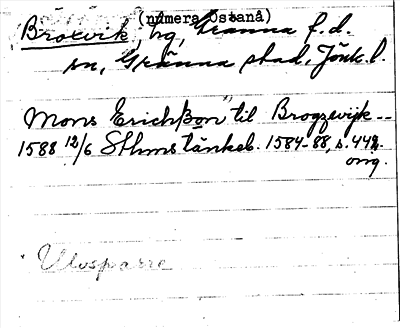 (numera Östanå)
Broxvik, hg, Gränna f.d.
sn, Gränna stad, Jönk.l.
Mons Erichßon "til Brogzevijk--
1588 12/6 Sthms tänkeb. 1584-88, s. 442.
omg.
Ulvsparre